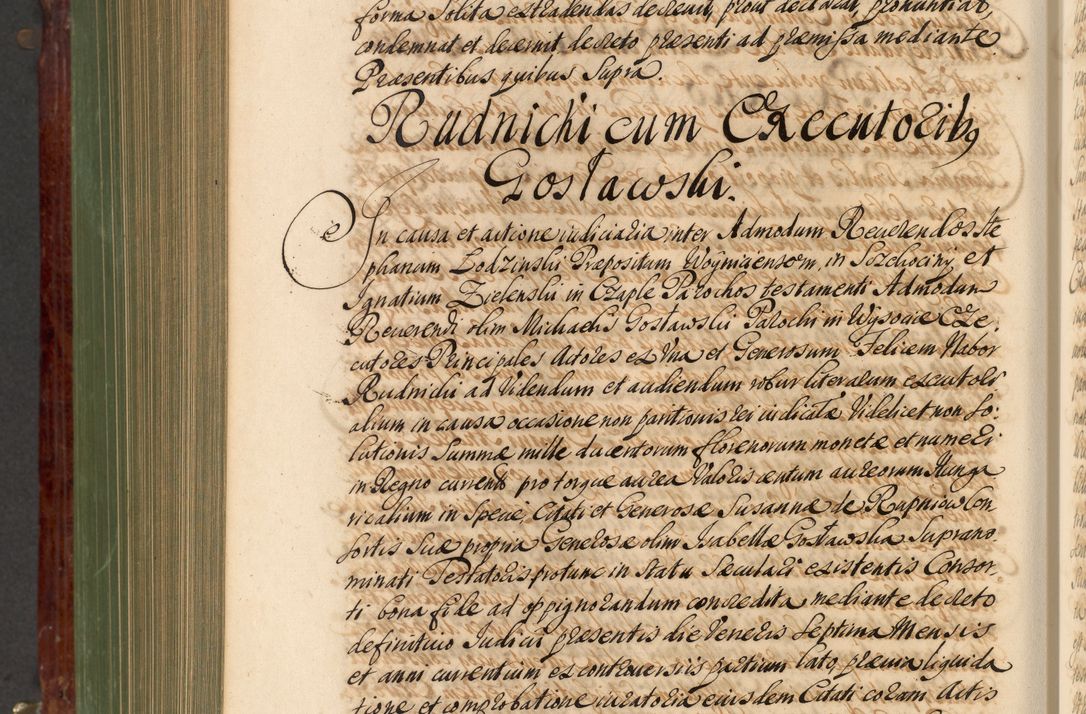 forma solita extradendas decrevit, prout declarat, pronuntiat,
condemnat et decernit decreto præsenti ad præmissa mediante
Præsentibus quibus supra.
Rudnicki cum Executorib9
Gosławski.
In causa et actione iudiciaria inter Admodum Reuerendos Ste
phanum Lodzinski Præpositum Woynicensem, in Szchociny, et
Ignatium Zielenski in Czaple Parochos testamenti Admodum
Reuerendi olim Michaelis Gosławski Parochi in Wysocie Exe:
cutores Principales Actores ex Vna et Generosum Felicem Nabor
Rudnicki ad Videndum et audiendum robur literarum executori
alium in causa occasione non paritionis rei iudicatæ Videlicet non So:
lutionis Summæ mille ducentorum florenorum monetæ et numeri
in Regno currentis pro torque aurea Valoris centum aureorum Hunga
ricalium in Specie, Citati et Generosæ Susannæ de Rupniow Con
sortis Suæ propria Generosæ olim Isabellæ Gosławska Suprano
minati Testatoris protunc in Statu Sæculari existentis Consor
ti bona fide ad oppignorandum concredita mediante decreto
definitiuo Iudicii præsentis die Veneris Septima Mensis
et anni currentium ex controuersiis partium lato, præuia liquida
tione et comprobatione iuratoria eiusdem Citati coram Actis